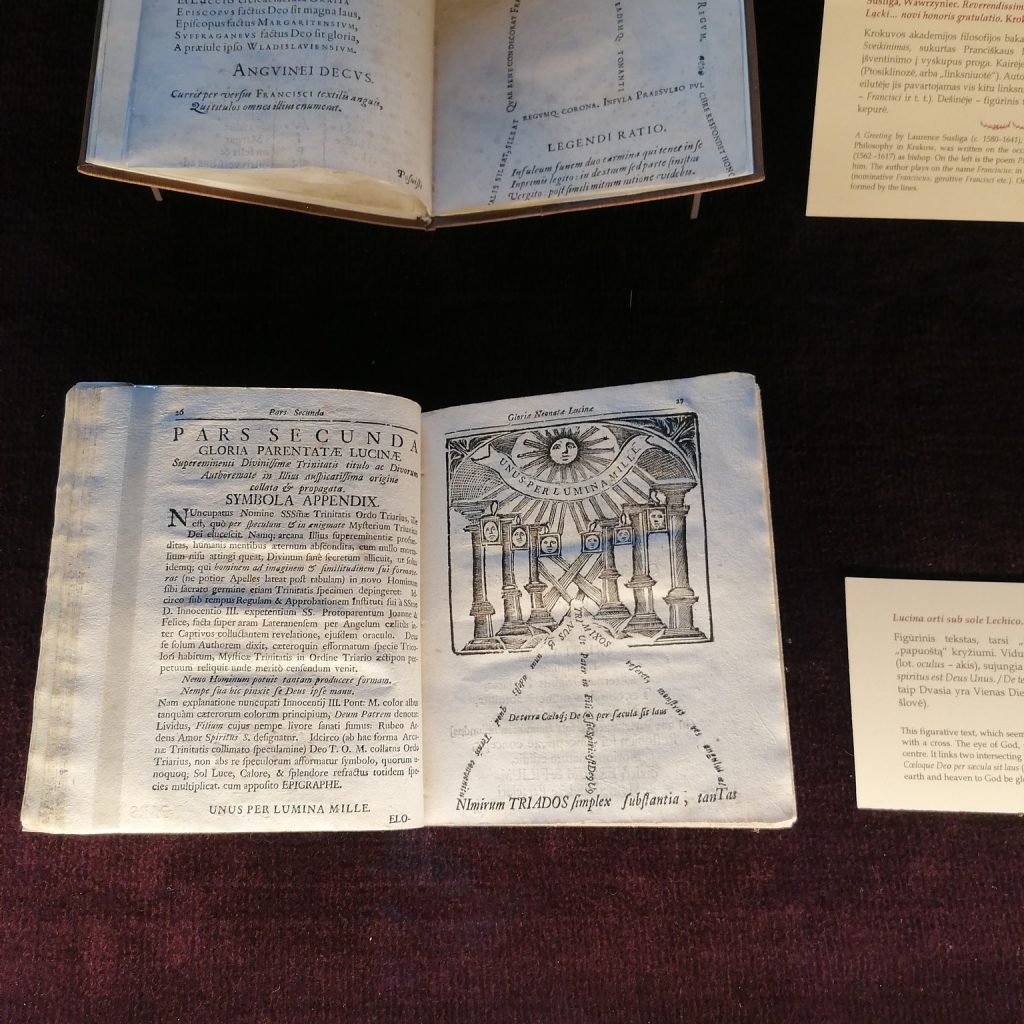 EPISCOPUS factus Deo sit magna laus,
Episcopus factus MARGARITENSIUM,
SUFFRAGANEUS factus Deo sit gloria,
A præsule ipso WLADISLAVIENSIUM.
ANGVINEI DECVS.
Currit per versus FRANCISCI textilis anguis,
Qui titulos omnes illius enumerat.
QUAE BENE CONDECORAT
TONANTI
REGVM.
REGVMQ. CORONA. INFVLA PRAESVLIBO PVL
CHRE RESPONDET HONO
LEGENDI RATIO.
Insuleum funem duo carmina qui tenet in se
Inprimis legito: in dextera sed parte sinistra
Vergito: post simili mitram ratione videbis.
Susliga, Wawrzyniec. Reverendissim
Lącki... novi honoris gratulatio. Krok
Krokuvos akademijos filosofijos baka
Sveikinimas, sukurtas Pranciškaus
įšventinimo į vyskupus proga. Kairėje
(Ptosiklinozė, arba „linksniuotė“). Auto
eilutėje jis pavartojamas vis kitu linksn
– Francisci ir t. t.). Dešinėje – figūrinis
kepurė.
A Greeting by Laurence Susliga (c. 1580–1641),
Philosophy in Krakow, was written on the occ
(1562–1617) as bishop. On the left is the poem
him. The author plays on the name Franciscus; in
(nominative Franciscus, genitive Francisci etc.). On
formed by the lines.
26 Pars Secunda
PARS SECUNDA
GLORIA PARENTATÆ LUCINÆ
Supereminenti Divinissimæ Trinitatis titulo ac Divorum
Authoremate in Illius auspicatissima origine
collata & propagata.
SYMBOLA APPENDIX.
NUncupatus Nomine SSSimæ Trinitatis Ordo Triarius, ille
est, quô per speculum & in ænigmate Mysterium Triunius
Dei elucescit. Namq; arcana Illius supereminentiæ profun
ditas, humanis mentibus æternum abscondita, cum nullo morta
lium nisu attingi queat, Divinum sanè secretum allicuit, ut solus
idemq; qui hominem ad imaginem & similitudinem sui forma
rat (ne potior Apelles lateat post tabulam) in novo Hominum
sibi sacrato germine etiam Trinitatis specimen depingeret: Id
circo sub tempus Regulam & Approbationem Instituti sui à SSmo
D. Innocentio III. expetentium SS. Protoparentum Joanne &
Felice, facta super aram Lateranensem per Angelum cælitùs in
ter Captivos colluctantem revelatione, ejusdem oraculo. Deus
se solum Authorem dixit, cæteroquin efformatum specie Tria
lori habitum, Mysticæ Trinitatis in Ordine Triario æctipon per
petuum reliquit unde meritò censendum venit.
Nemo Hominum potuit tantam producere formam.
Nempe sua hic pinxit se Deus ipse manu.
Nam explanatione nuncupati Innocentij III. Pont: M. color albus
tanquàm cæterorum colorum principium, Deum Patrem denotat
Lividus, Filium cujus nempe livore sanati sumus: Rubeo Ar
dens Amor Spiritûs S. designatur. Idcirco (ab hac forma Arca
næ Trinitatis collimato speculamine) Deo T. O. M. collatus Ordo
Triarius, non abs re speculorum affformatur symbolo, quorum u-
noquoq; Sol Luce, Calore, & splendore refractus totidem spe
cies multiplicat. cum apposito EPIGRAPHE.
UNUS PER LUMINA MILLE.
ELO-
Gloriæ Neonatæ Lucinæ 27
UNUS PER LUMINA MILLE
De terra Cœloq; Deo per sæcula sit laus
NImirum TRIADOS simplex substantia; tanTas
Lucina orti sub sole Lechico.
Figūrinis tekstas, tarsi „
„papuoštą“ kryžiumi. Vidu
(lot. oculus – akis), sujungia
spiritus est Deus Unus. / De te
taip Dvasia yra Vienas Die
šlovė).
This figurative text, which seem
with a cross. The eye of God,
centre. It links two intersecting
Cœloque Deo per sæcula sit laus
earth and heaven to God be gl